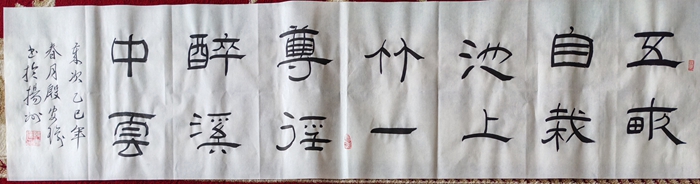 五畝
自栽
池上
竹一
尊徑
醉溪
中雲
歲次乙巳年
春月殷安
書於揚州